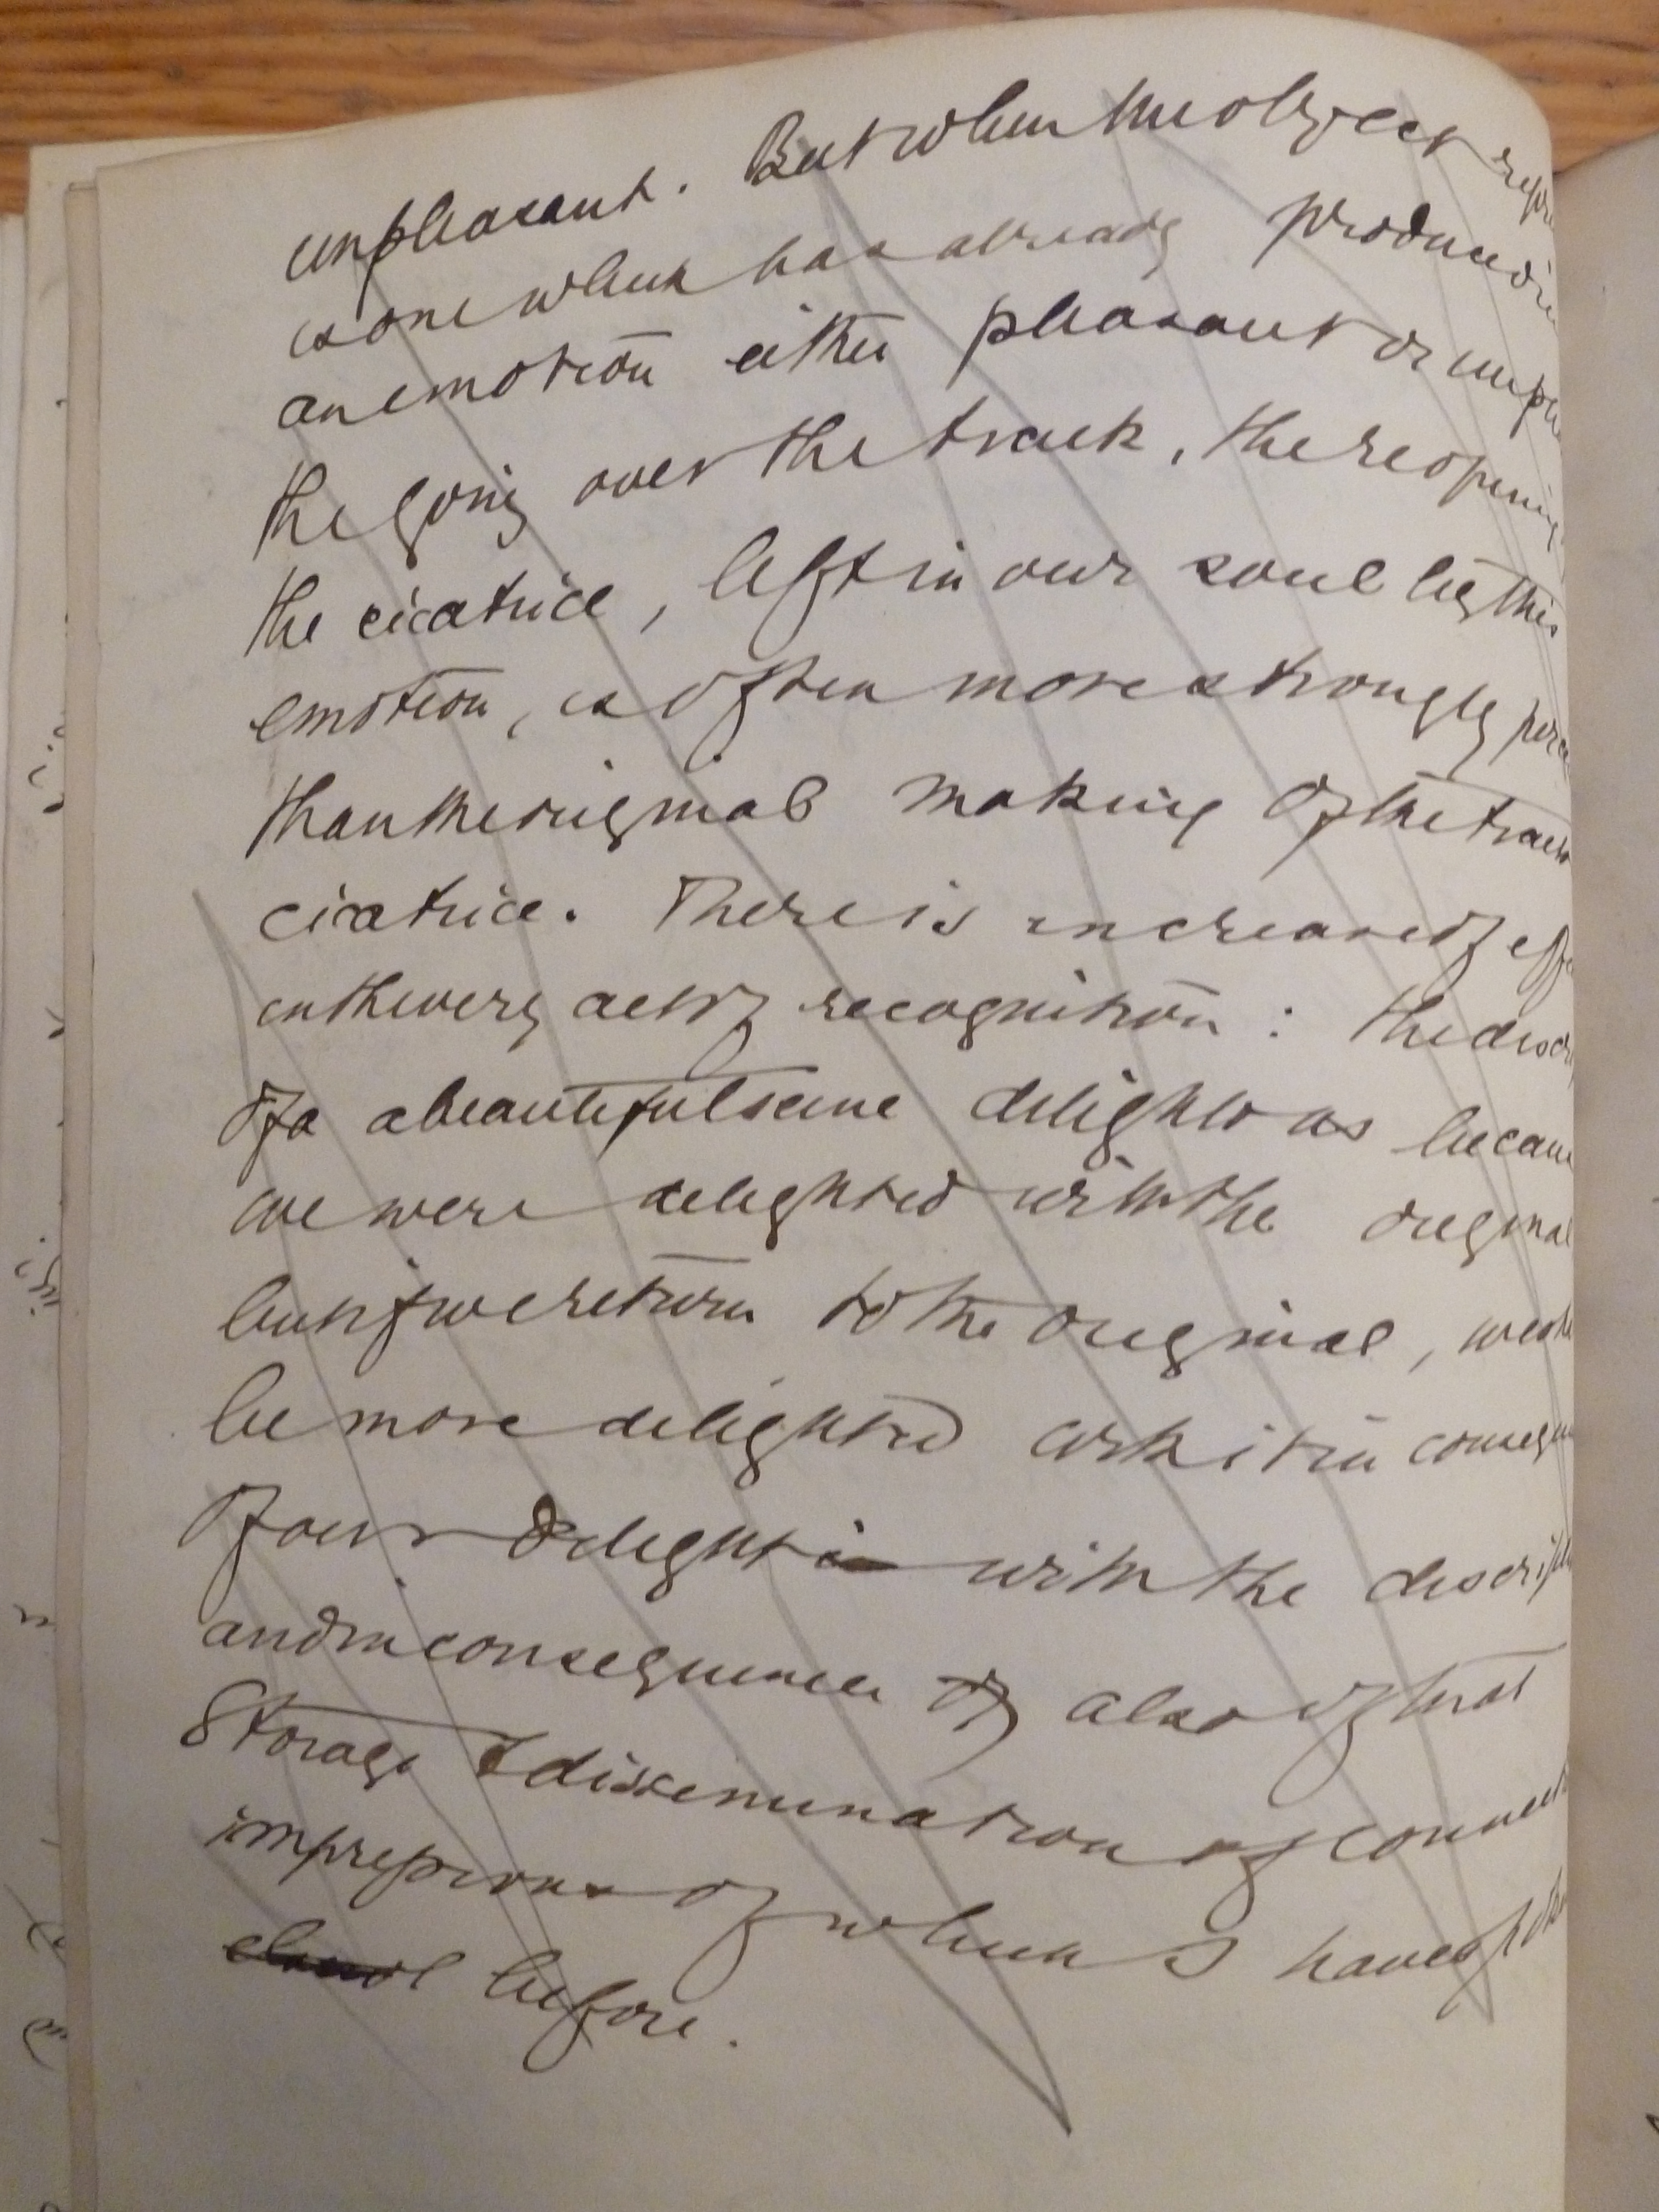 unpleasant. But when the object
is one which has already produced in
an emotion either pleasant or
the going over the track, the reopening
the cicatrice, left in our soul by this
emotion, is often more strongly
than the original making of the track
cicatrice. There is increase of
in the very act of recognition : the
of a a beautiful scene delights us
we were delighted with the original
but if we return to the original,
be more delighted with it in
of our delight with the
and in consequence of also of that
Storage & dissemination of
impressions of which I have
before.